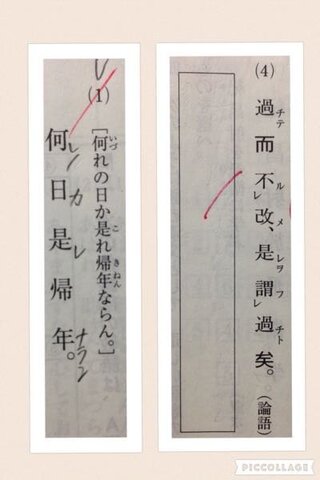 (4)
過チテ而不レル改メ、是レヲ謂レフ過チト矣。(論語)
(1)
[何いづれの日か是これ帰年きねんならん。]
何レノ日カ是レ帰年ナラン。
PICCOLLAGE